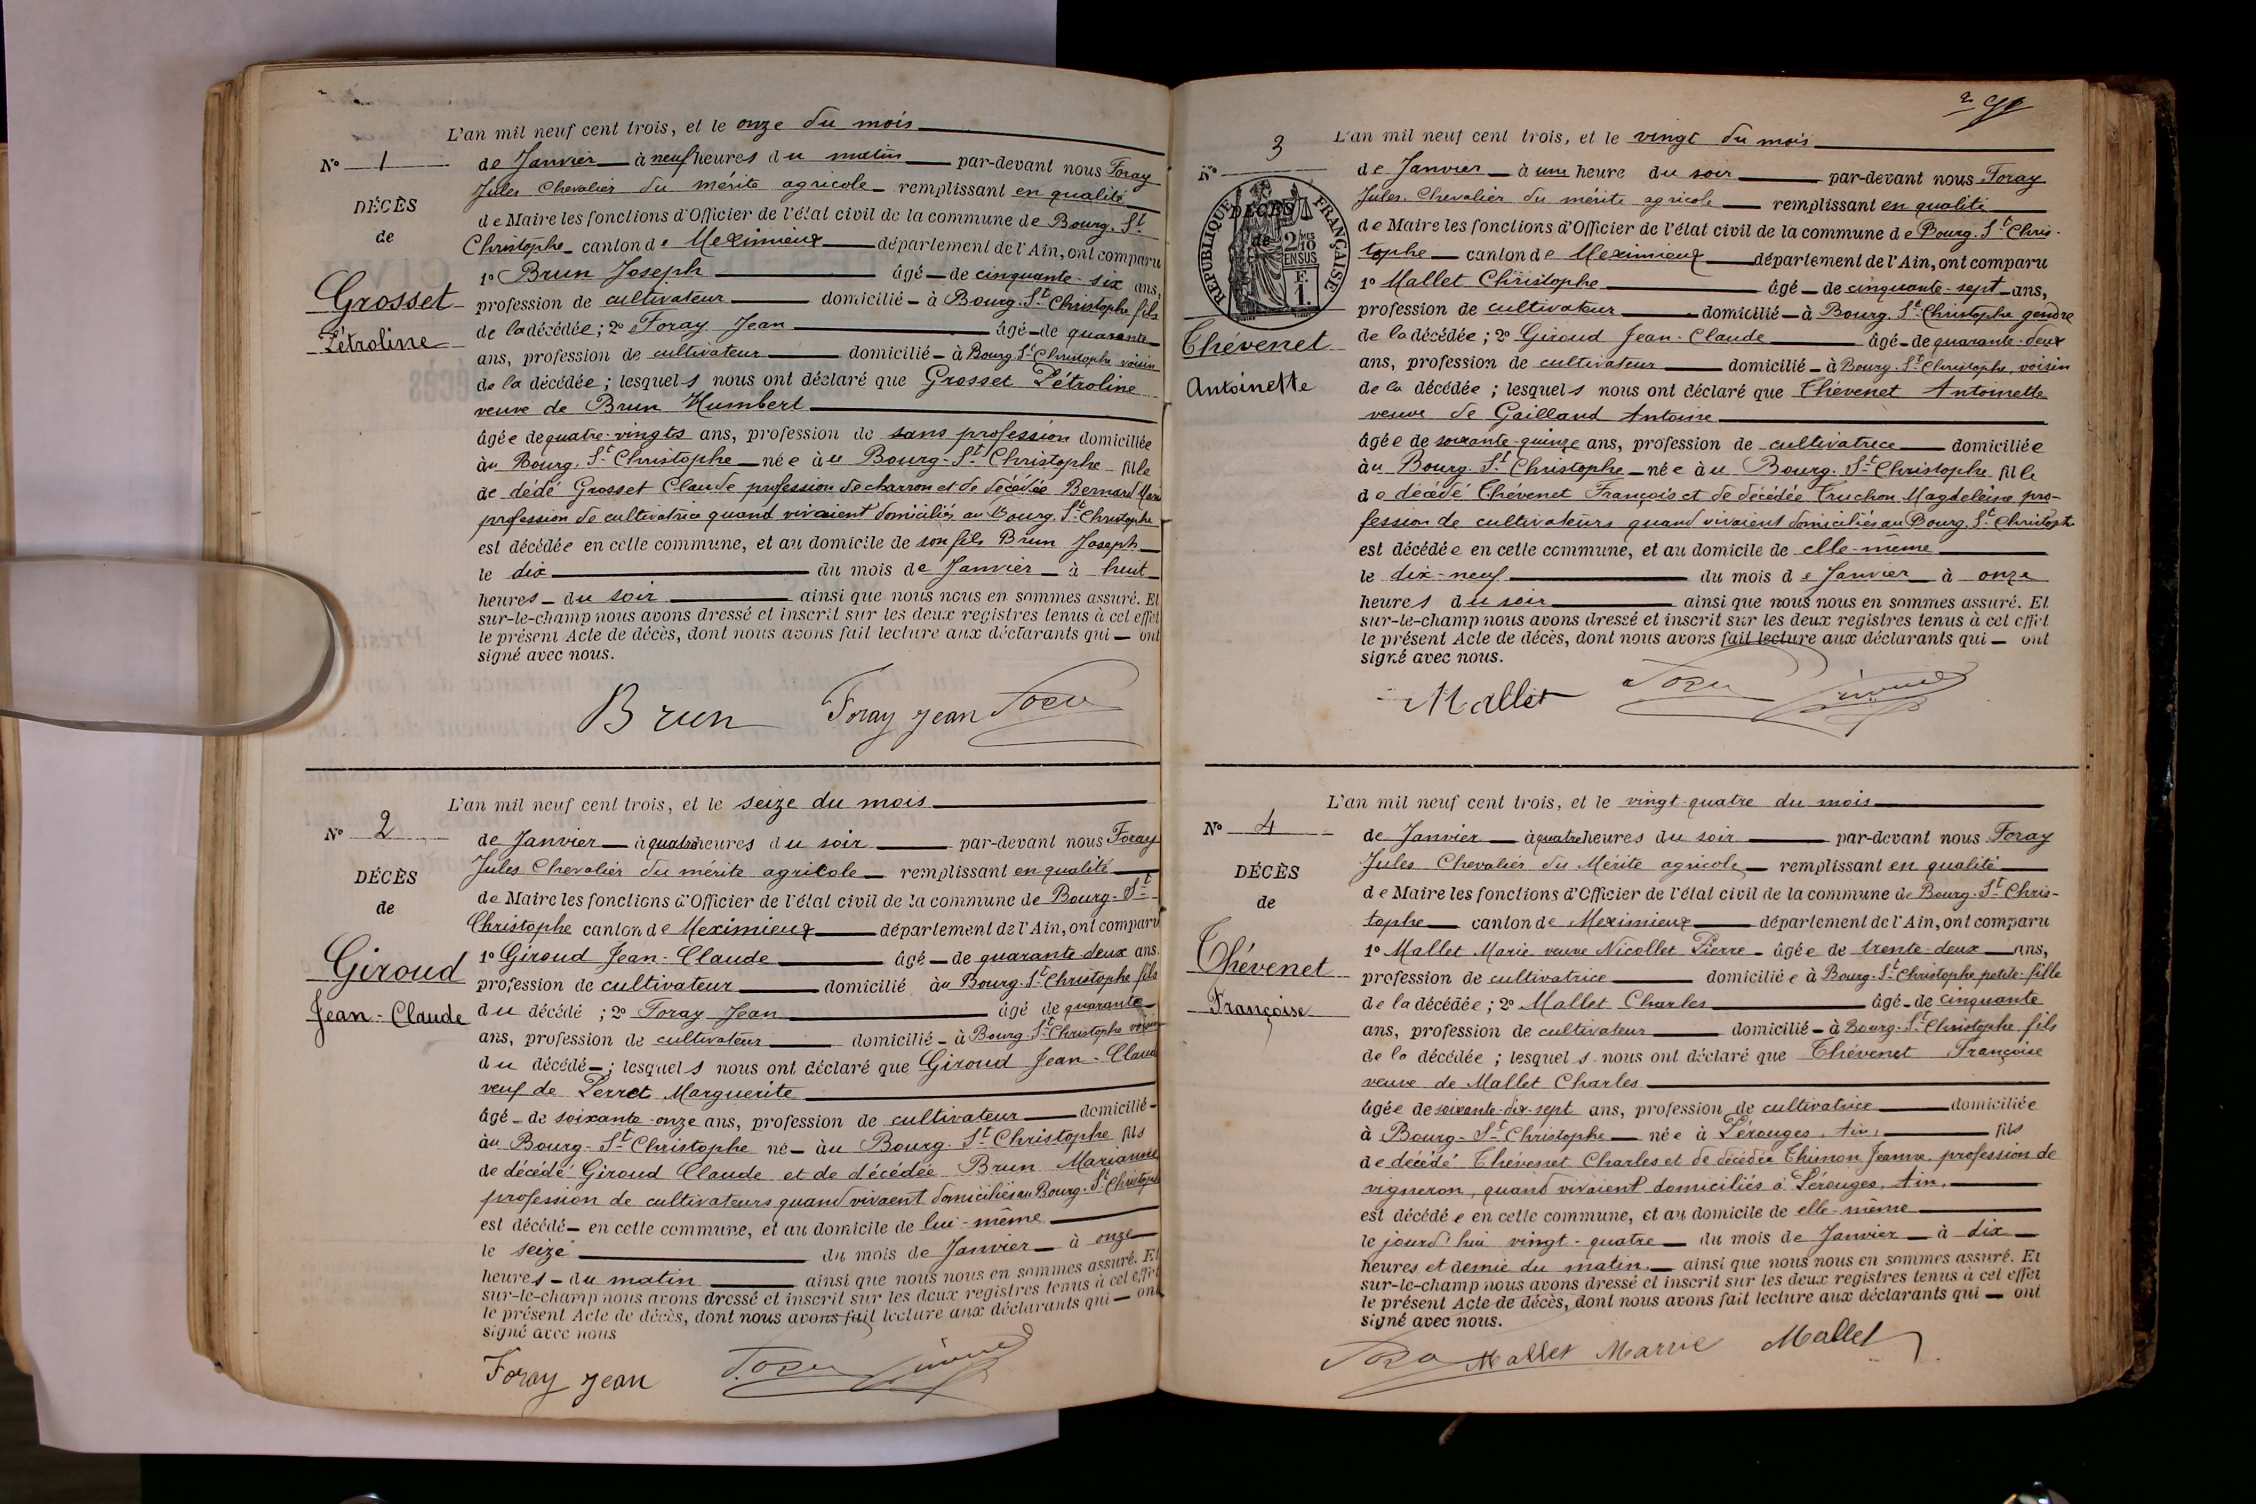 L'an mil neuf cent trois, et le onze du mois
N° 1
de Janvier à neuf heures du matin par-devant nous Foray
Jules Chevalier du mérite agricole remplissant en qualité
DÉCÈS
de Maire les fonctions d'Officier de l'état civil de la commune de Bourg. St
de
Christophe canton de Meximieux département de l'Ain, ont comparu
1° Brun Joseph âgé de cinquante-six ans,
Grosset
profession de cultivateur domicilié à Bourg. St Christophe fils
Pétroline
de la décédée; 2° Foray Jean âgé de quarante
ans, profession de cultivateur domicilié à Bourg St Christophe voisin
de la décédée; lesquels nous ont déclaré que Grosset Pétroline
veuve de Brun Humbert
âgée de quatre-vingts ans, profession de sans profession domiciliée
au Bourg. St Christophe née au Bourg-St Christophe fille
de dédé Grosset Claude profession de charron et de décédée Bernard Marie
profession de cultivatrice quand vivaient domiciliés au Bourg. St Christophe
est décédée en cette commune, et au domicile de son fils Brun Joseph
le dix du mois de Janvier à huit
heures du soir ainsi que nous nous en sommes assuré. Et
sur-le-champ nous avons dressé et inscrit sur les deux registres tenus à cet effet
le présent Acte de décès, dont nous avons fait lecture aux déclarants qui ont
signé avec nous.
Brun Foray Jean Foray
L'an mil neuf cent trois, et le seize du mois
N° 2
de Janvier à quatre heures du soir par-devant nous Foray
Jules Chevalier du mérite agricole remplissant en qualité
DÉCÈS
de Maire les fonctions d'Officier de l'état civil de la commune de Bourg-St
de
Christophe canton de Meximieux département de l'Ain, ont comparu
1° Giroud Jean-Claude âgé de quarante deux ans.
Giroud
profession de cultivateur domicilié au Bourg. St Christophe fils
Jean-Claude
du décédé; 2° Foray Jean âgé de quarante
ans, profession de cultivateur domicilié à Bourg-St Christophe voisin
du décédé; lesquels nous ont déclaré que Giroud Jean-Claude
veuf de Perret Marguerite
âgé de soixante-onze ans, profession de cultivateur domicilié
au Bourg-St Christophe né au Bourg. St Christophe fils
de décédé Giroud Claude et de décédée Brun Marianne
profession de cultivateurs quand vivaent domiciliés au Bourg. St Christophe
est décédé en cette commune, et au domicile de lui-même
le seize du mois de Janvier à onze
heures du matin ainsi que nous nous en sommes assuré. Et
sur-le-champ nous avons dressé et inscrit sur les deux registres tenus à cet effet
le présent Acte de décès, dont nous avons fait lecture aux déclarants qui ont
signé avec nous
Foray Jean Foray Giroud
2
L'an mil neuf cent trois, et le vingt du mois
N° 3
de Janvier à une heure du soir par-devant nous Foray
Jules Chevalier du mérite agricole remplissant en qualité
DÉCÈS
de
RÉPUBLIQUE FRANÇAISE
2/10 EN SUS
F. 1.
de Maire les fonctions d'Officier de l'état civil de la commune de Bourg. St Chris-
tophe canton de Meximieux département de l'Ain, ont comparu
1° Mallet Christophe âgé de cinquante-sept ans,
profession de cultivateur domicilié à Bourg. St Christophe gendre
Thévenet
de la décédée; 2° Giroud Jean-Claude âgé de quarante-deux
ans, profession de cultivateur domicilié à Bourg. St Christophe, voisin
Antoinette
de la décédée; lesquels nous ont déclaré que Thévenet Antoinette
veuve de Gailland Antoine
âgée de soixante-quinze ans, profession de cultivatrice domiciliée
au Bourg. St Christophe née au Bourg. St Christophe fille
de décédé Thévenet François et de décédée Truchon Magdeleine pro-
fession de cultivateurs quand vivaient domiciliés au Bourg. St Christophe
est décédée en cette commune, et au domicile de elle-même
le dix-neuf du mois de Janvier à onze
heures du soir ainsi que nous nous en sommes assuré. Et
sur-le-champ nous avons dressé et inscrit sur les deux registres tenus à cet effet
le présent Acte de décès, dont nous avons fait lecture aux déclarants qui ont
signé avec nous.
Mallet Foray Giroud
L'an mil neuf cent trois, et le vingt-quatre du mois
N° 4
de Janvier à quatre heures du soir par-devant nous Foray
Jules Chevalier du Mérite agricole remplissant en qualité
DÉCÈS
de Maire les fonctions d'Officier de l'état civil de la commune de Bourg. St Chris-
de
tophe canton de Meximieux département de l'Ain, ont comparu
1° Mallet Marie veuve Nicollet Pierre âgée de trente-deux ans,
Thévenet
profession de cultivatrice domiciliée à Bourg. St Christophe petite-fille
Françoise
de la décédée; 2° Mallet Charles âgé de cinquante
ans, profession de cultivateur domicilié à Bourg. St Christophe fils
de la décédée; lesquels nous ont déclaré que Thévenet Françoise
veuve de Mallet Charles
âgée de soixante-dix-sept ans, profession de cultivatrice domiciliée
à Bourg-St Christophe née à Pérouges, Ain, fils
de décédé Thévenet Charles et de décédée Thimon Jeanne, profession de
vigneron, quand vivaient domiciliés à Pérouges, Ain,
est décédée en cette commune, et au domicile de elle-même
le jourd'hui vingt-quatre du mois de Janvier à dix
heures et demie du matin, ainsi que nous nous en sommes assuré. Et
sur-le-champ nous avons dressé et inscrit sur les deux registres tenus à cet effet
le présent Acte de décès, dont nous avons fait lecture aux déclarants qui ont
signé avec nous.
Foray Mallet Marie Mallet